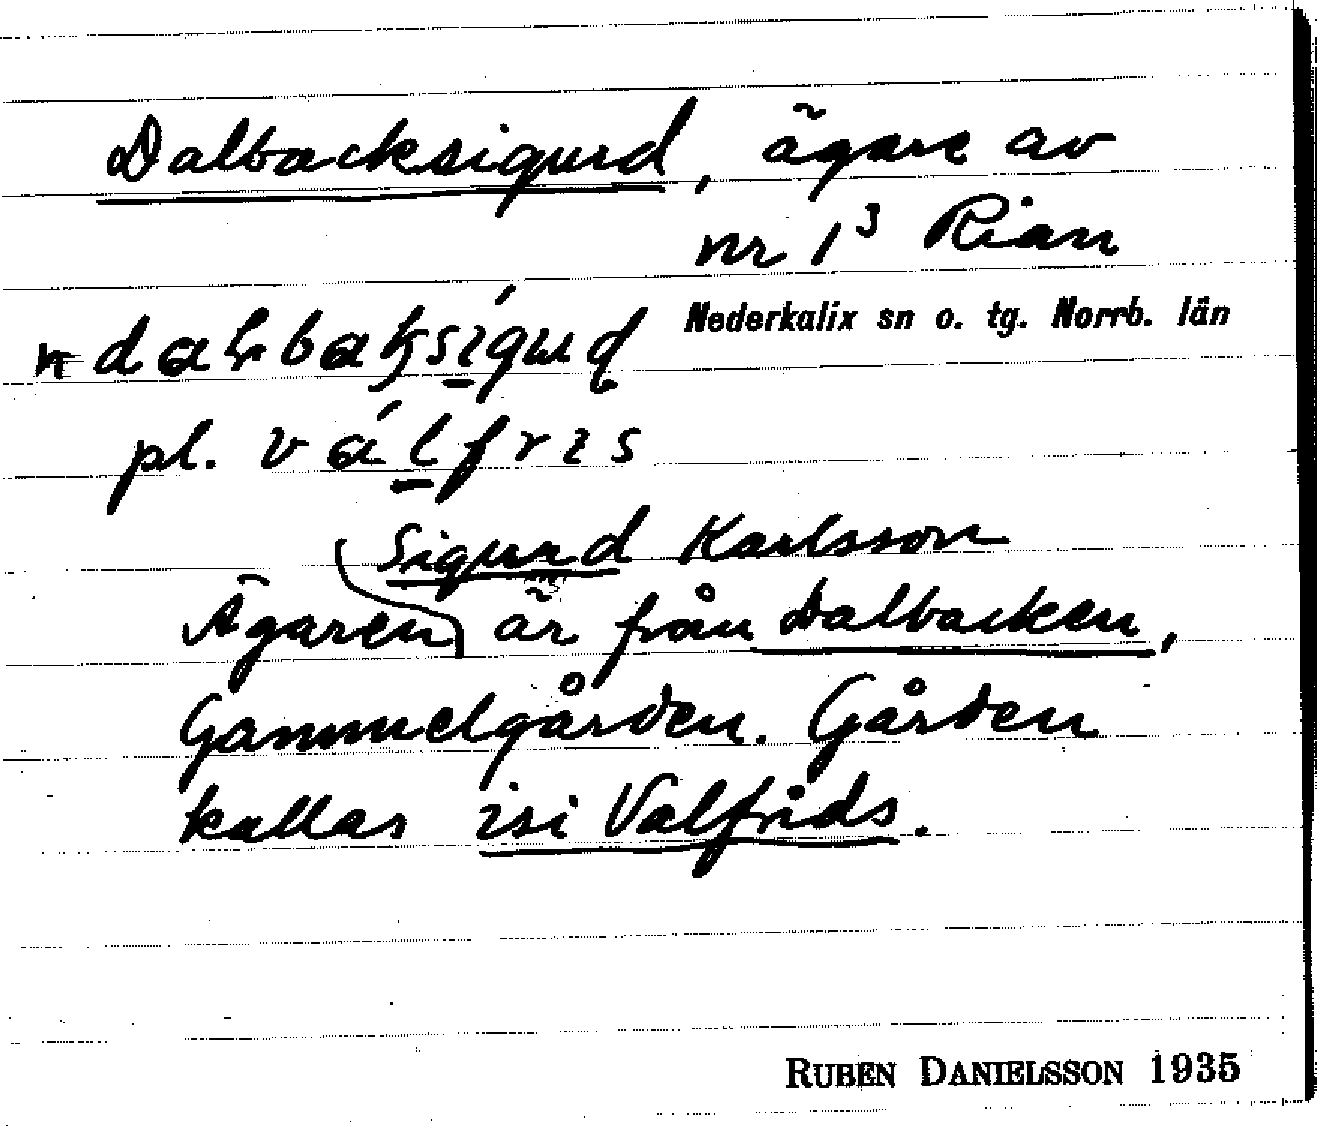 Dalbacksigurd, ägare av
nr 1³ Rian
Nederkalix sn o. tg. Norrb. län
pl. válfrɩs
Sigurd Karlsson
Ägaren är från Dalbacken,
Gammelgården. Gården
kallas isi Valfrids.
RUBEN DANIELSSON 1935